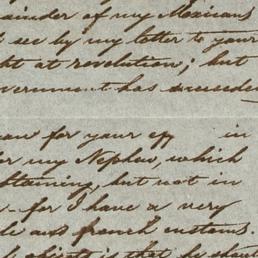 ainder of my Mexicans
t see by my letter to your
ht at revolution; but
vernment has succeeded
ean for your eff in
for my Nephew, which
staining, but not in
- for I have a very
le and french customs.
object is that he shou